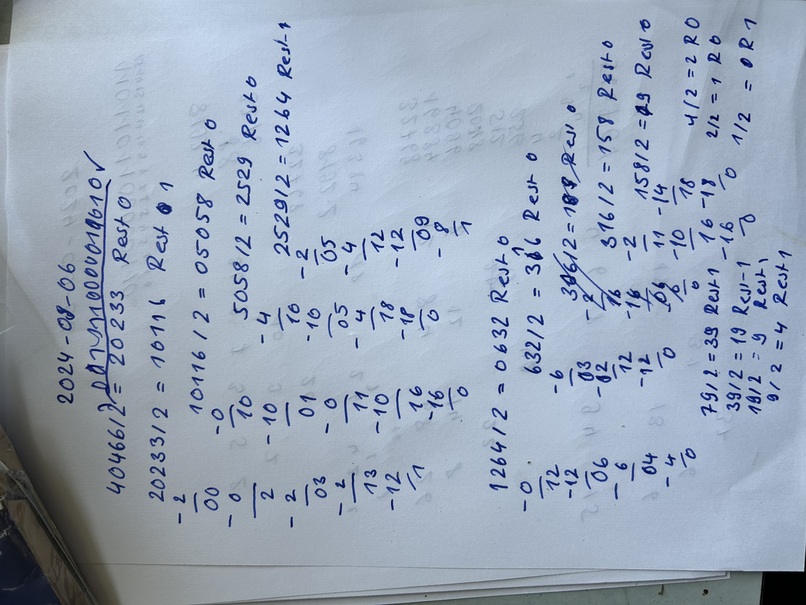 2024-09-06
40466/2 = 20233 Rest 0
20233/2 = 10116 Rest 1
- 2
00
- 0
2
- 2
03
- 2
13
- 12
1
10116/2 = 05058 Rest 0
- 0
10
- 10
01
- 0
11
- 10
16
- 16
0
5058/2 = 2529 Rest 0
- 4
10
- 10
05
- 4
18
- 18
0
2529/2 = 1264 Rest 1
- 2
05
- 4
12
- 12
09
- 8
1
1264/2 = 0632 Rest 0
- 0
12
- 12
06
- 6
04
- 4
0
632/2 = 316 Rest 0
- 6
03
- 02
12
- 12
0
316/2 = 158 Rest 0
- 2
11
- 10
16
- 16
0
158/2 = 79 Rest 0
- 14
18
- 18
0
79/2 = 39 Rest 1
39/2 = 19 Rest 1
19/2 = 9 Rest 1
9/2 = 4 Rest 1
4/2 = 2 R0
2/2 = 1 R0
1/2 = 0 R1